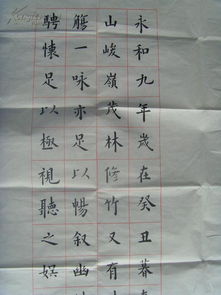 永和九年歲在癸丑暮春
山峻嶺茂林修竹又有
觴一咏亦足以暢叙幽
騁懷足以極視聽之娛